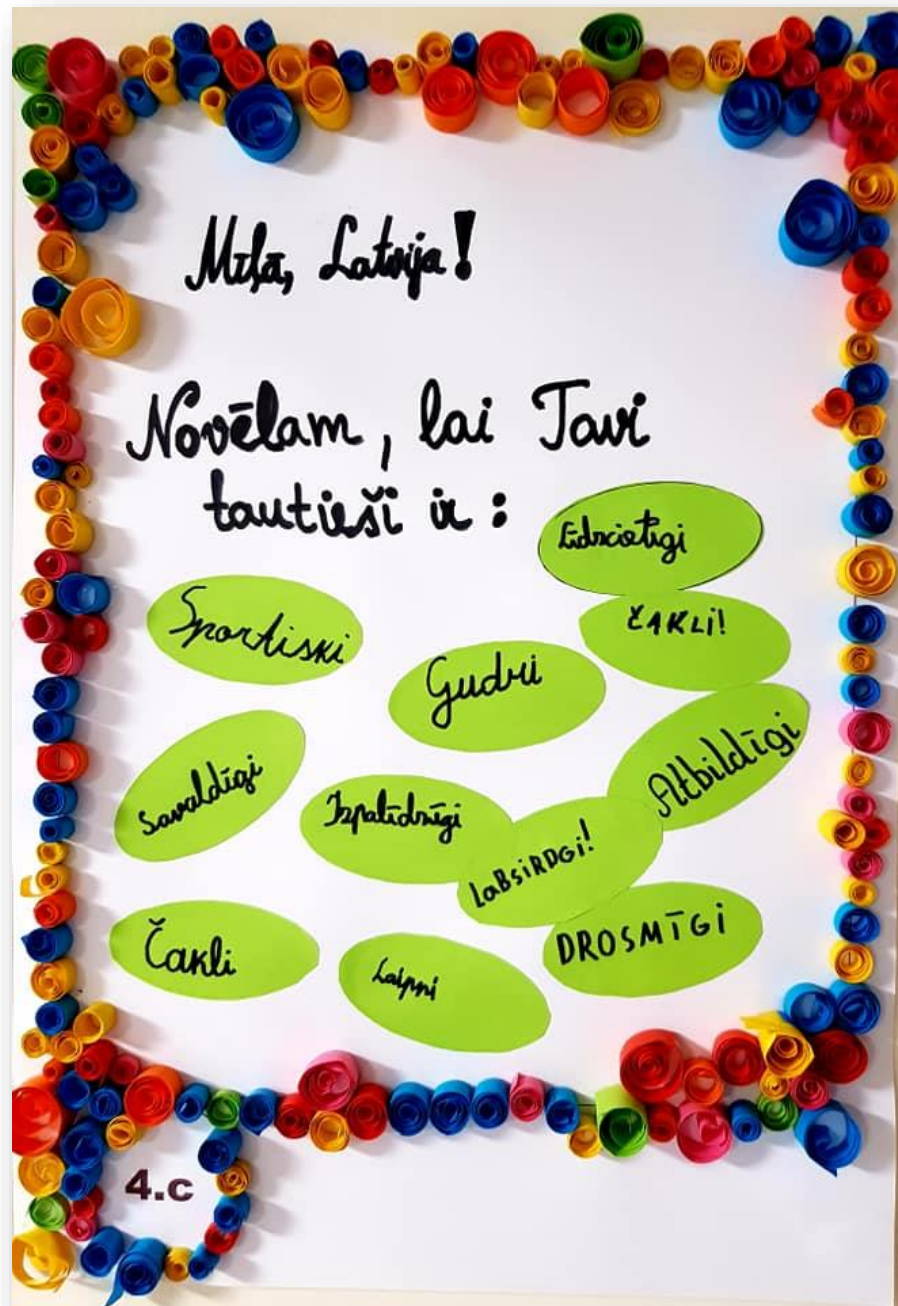 Mīļā, Latvija!
Novēlam, lai Tavi
tautieši ir:
Līdzcietīgi
Sportiski
ČAKLI!
Gudri
Atbildīgi
Savaldīgi
Izpalīdzīgi
LABSIRDGI!
Čakli
Laipni
DROSMĪGI
4.c